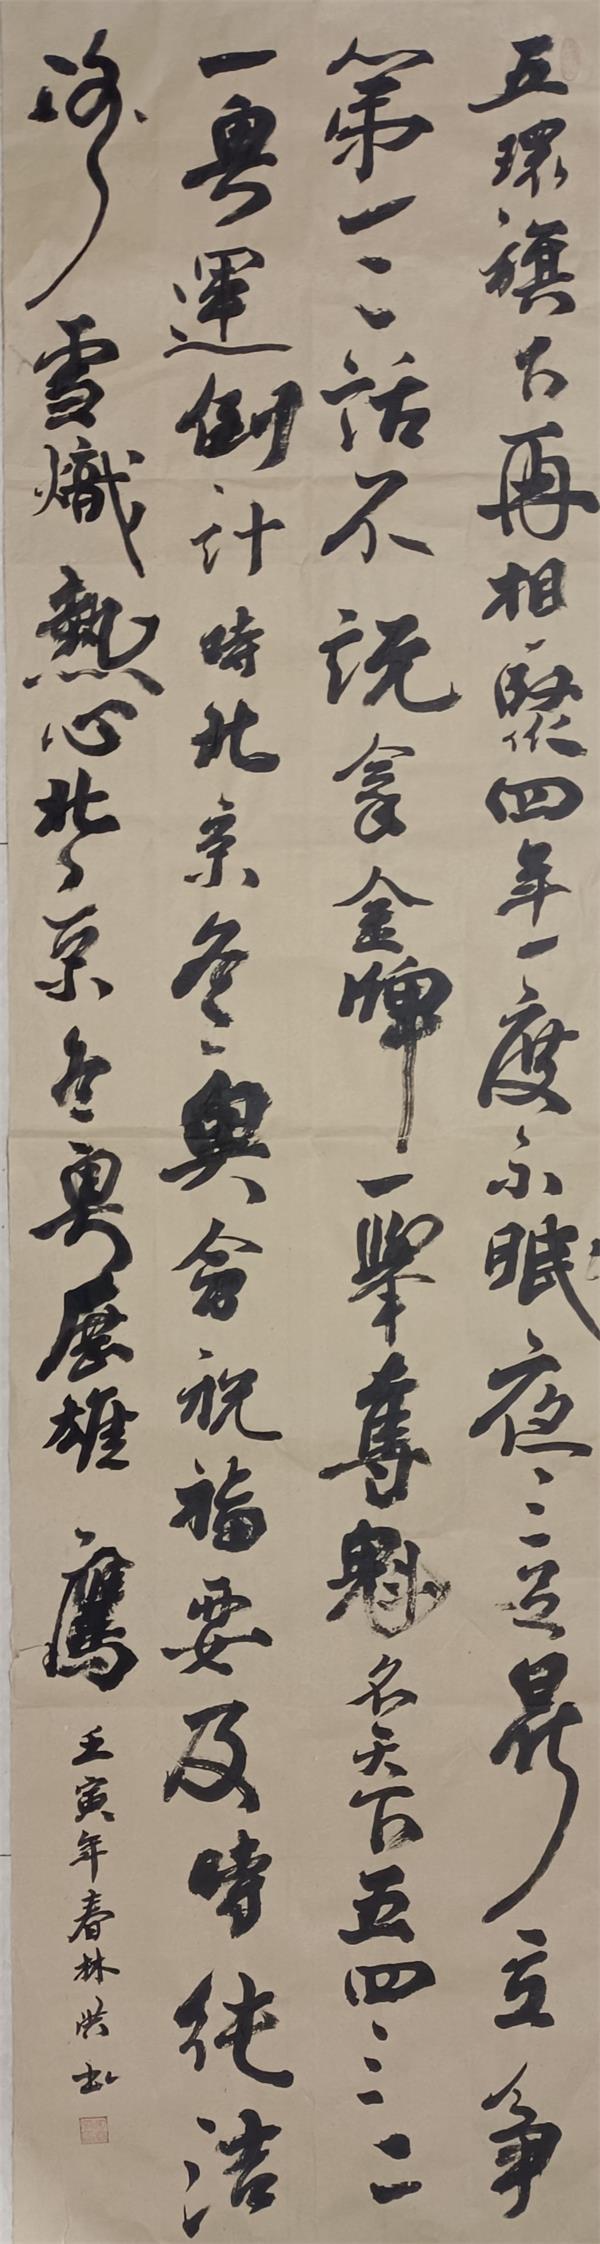 五環旗下再相聚四年一度不眠夜三足鼎立爭
第一二話不說拿金牌一舉奪魁名天下五四三二
一奧運倒計時北京冬奧會祝福要及時純潔
雪熾熱心北京冬奧展雄鷹
壬寅年春林洪書